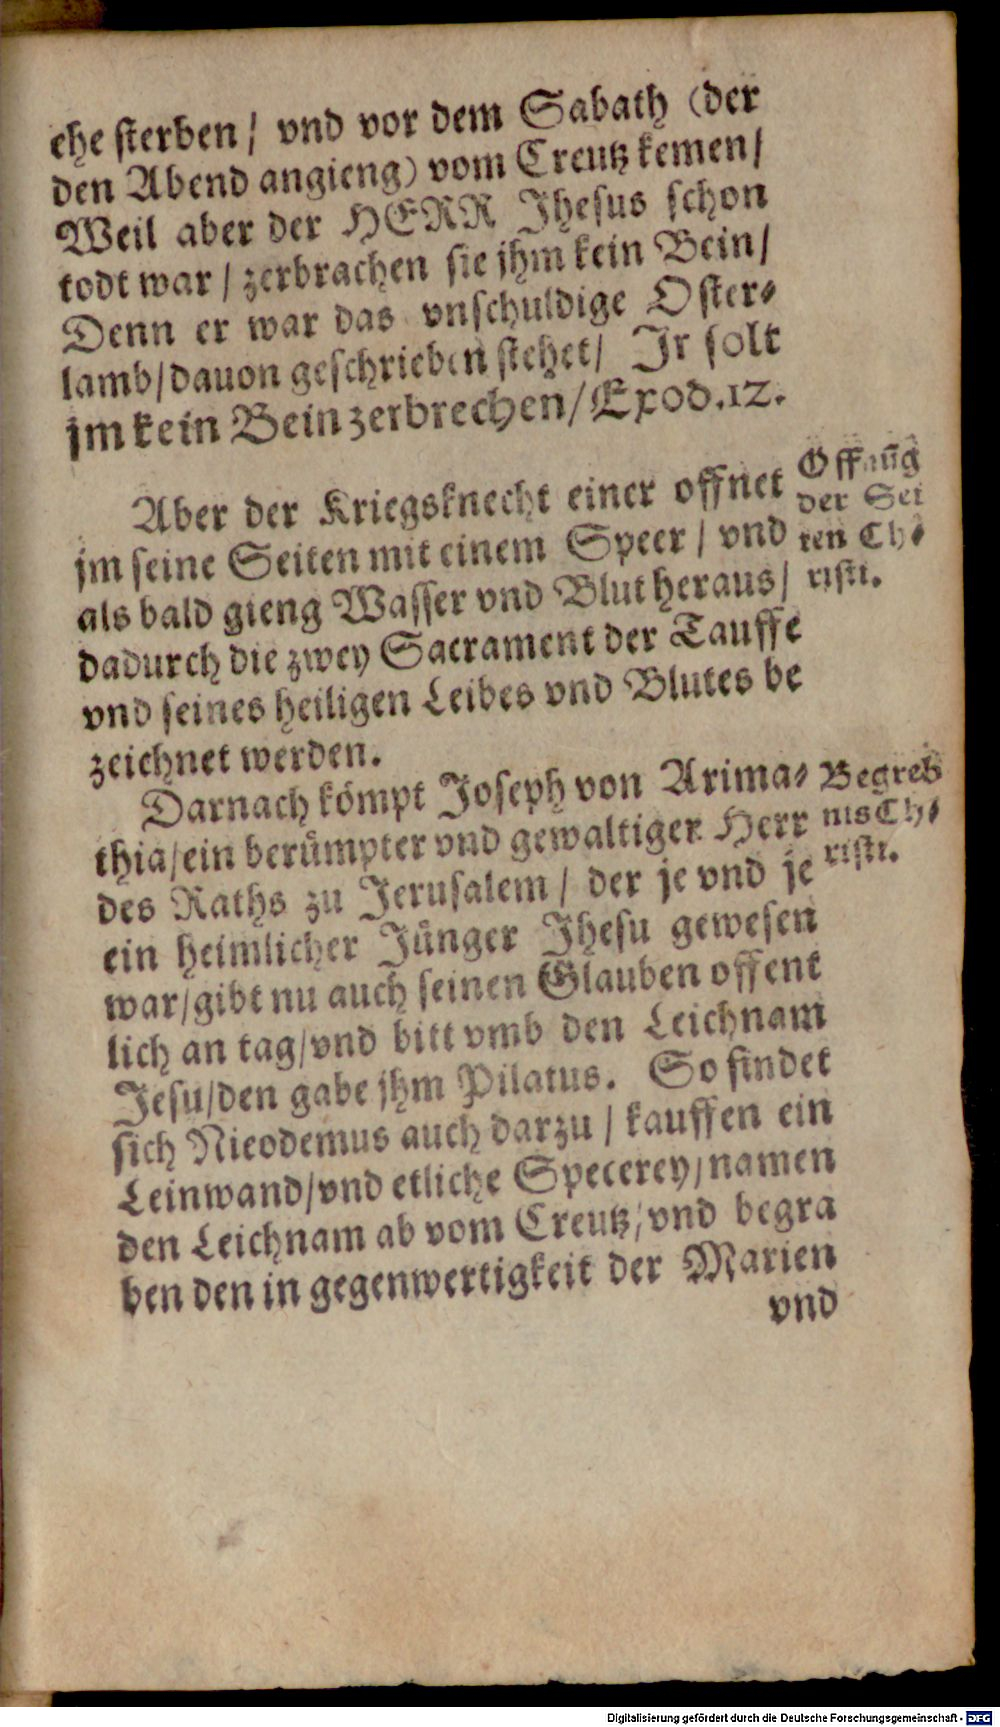 ehe sterben / vnd vor dem Sabath (der
den Abend angieng) vom Creutz kemen /
Weil aber der HERR Jhesus schon
todt war / zerbrachen sie jhm kein Bein /
Denn er war das vnschuldige Oster⸗
lamb / dauon geschrieben stehet / Jr solt
jm kein Bein zerbrechen / Exod. 12.
Aber der Kriegsknecht einer offnet
jm seine Seiten mit einem Speer / vnd
als bald gieng Wasser vnd Blut heraus /
dadurch die zwey Sacrament der Tauffe
vnd seines heiligen Leibes vnd Blutes be
zeichnet werden.
Öffnūg
der Sei
ten Ch⸗
risti.
Darnach kömpt Joseph von Arima⸗
thia / ein berümpter vnd gewaltiger Herr
des Raths zu Jerusalem / der je vnd je
ein heimlicher Jünger Jhesu gewesen
war / gibt nu auch seinen Glauben offent
lich an tag / vnd bitt vmb den Leichnam
Jesu / den gabe jhm Pilatus. So findet
sich Nicodemus auch darzu / kauffen ein
Leinwand / vnd etliche Specerey / namen
den Leichnam ab vom Creutz / vnd begra
ben den in gegenwertigkeit der Marien
vnd
Begreb
nis Ch⸗
risti.
Digitalisierung gefördert durch die Deutsche Forschungsgemeinschaft - DFG